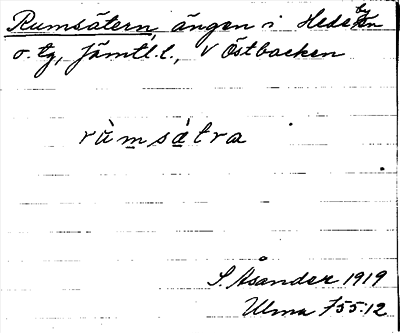 Rumsätern, ängen i Hede by
o. tg, Jämtl. l., V Östbacken
rùmsátra
S. Åsander 1919
Ulma 755:12